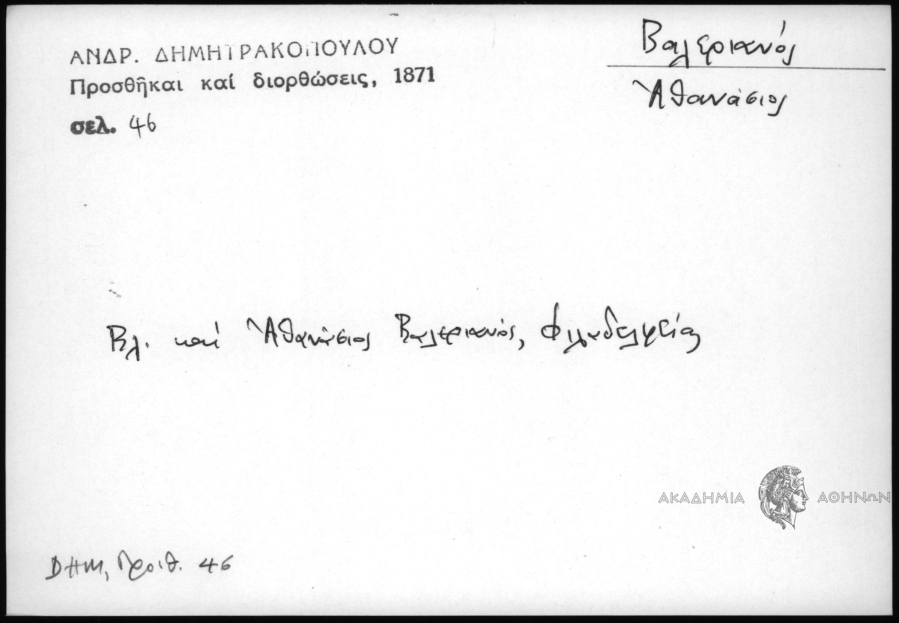 ΑΝΔΡ. ΔΗΜΗΤΡΑΚΟΠΟΥΛΟΥ
Προσθῆκαι καί διορθώσεις, 1871
σελ. 46
Βαλεριανός
Ἀθανάσιος
Βλ. καί Ἀθανάσιος Βαλεριανός, Φιλαδελφείας
ΑΚΑΔΗΜΙΑ ΑΘΗΝΩΝ
ΔΗΜ, Προσθ. 46